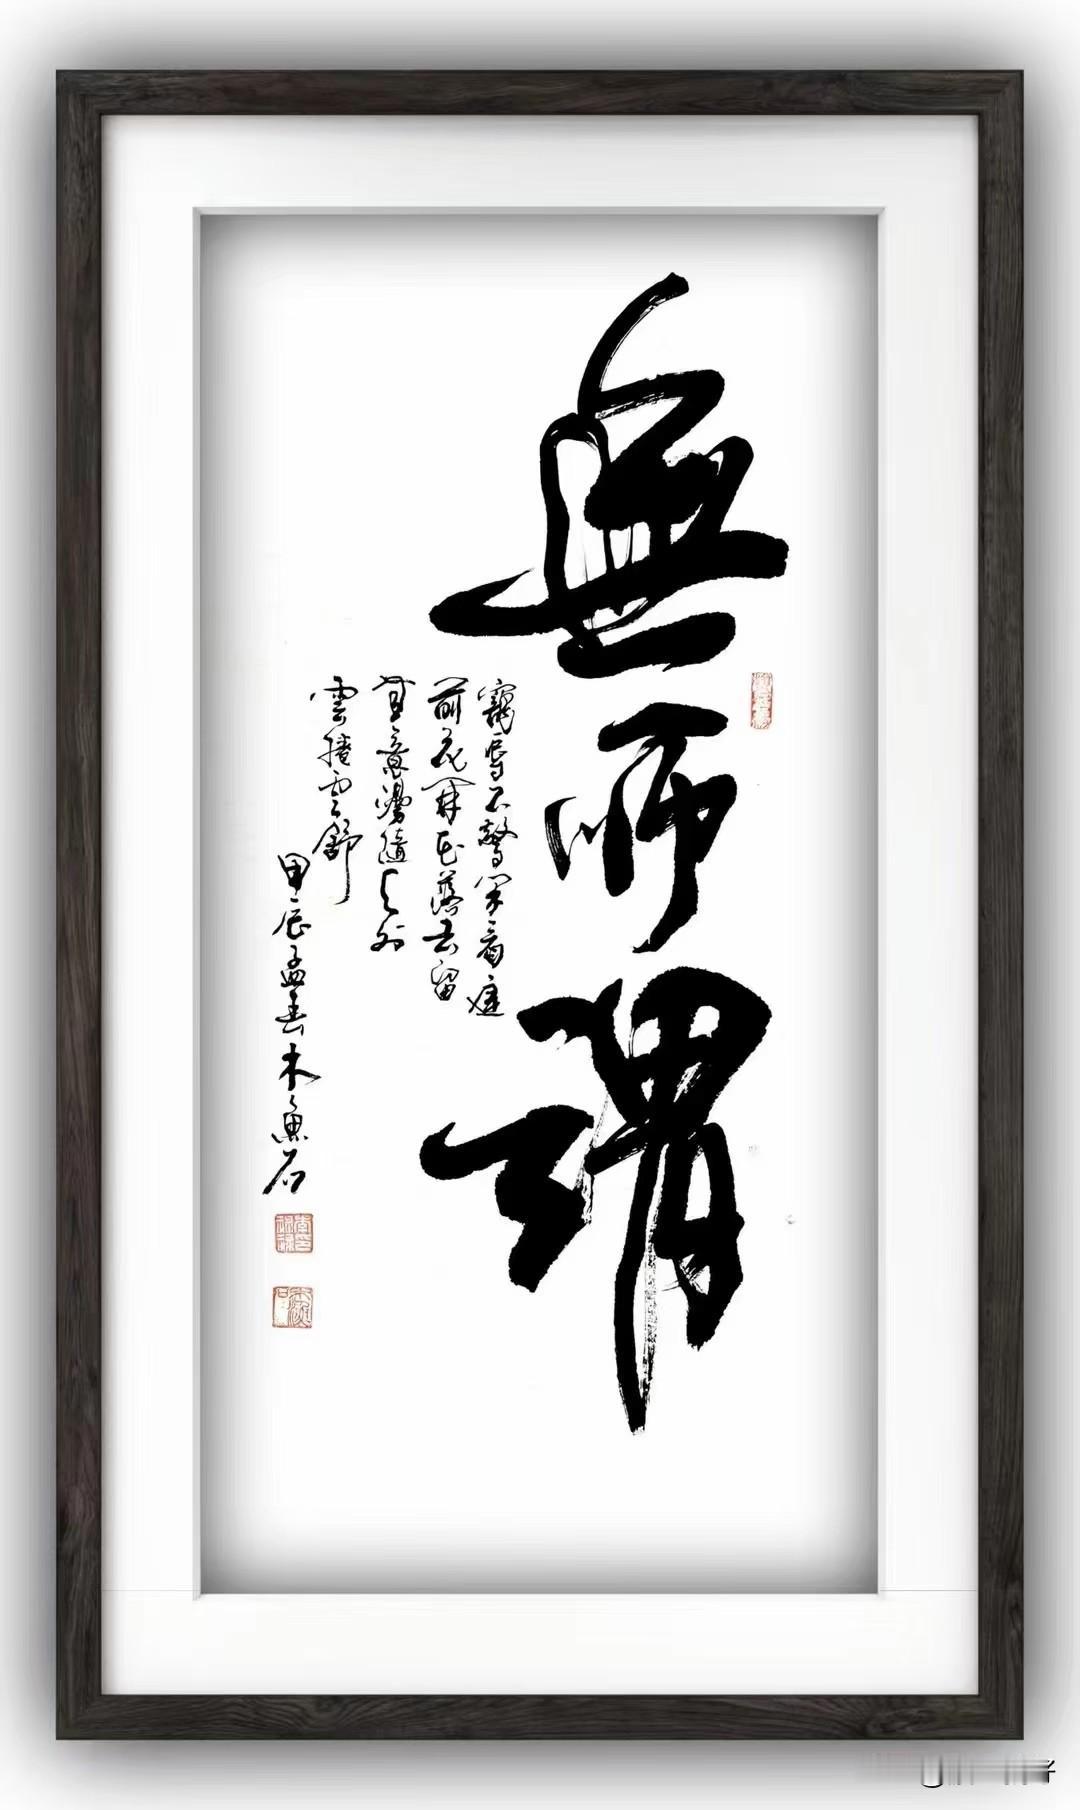 無所謂
寵辱不驚閑看庭
前花開花落去留
無意漫隨天外
雲捲雲舒
甲辰孟春木魚石